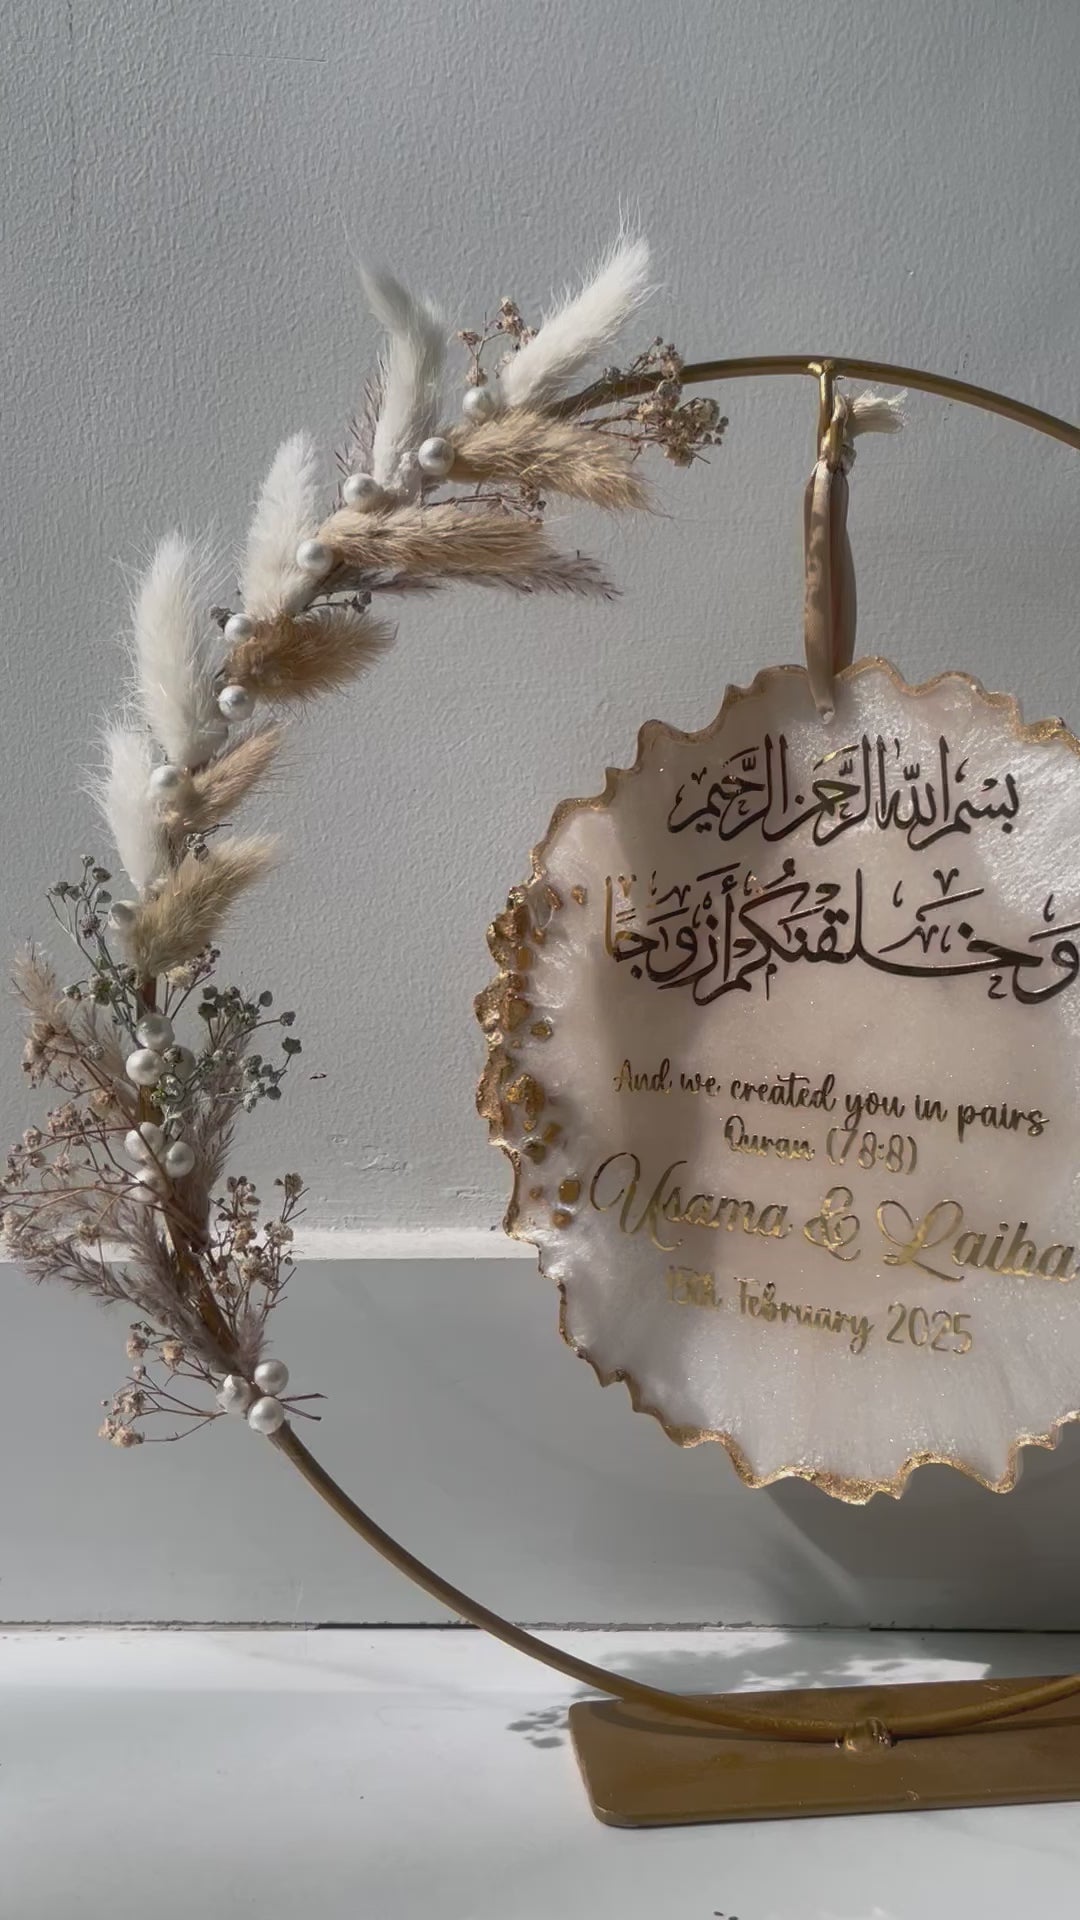 بسم الله الرحمن الرحيم
وَخَلَقْنَكُمْ أَزْوَجًا
And we created you in pairs
Quran (78:8)
Usama & Laiba
15th February 2025